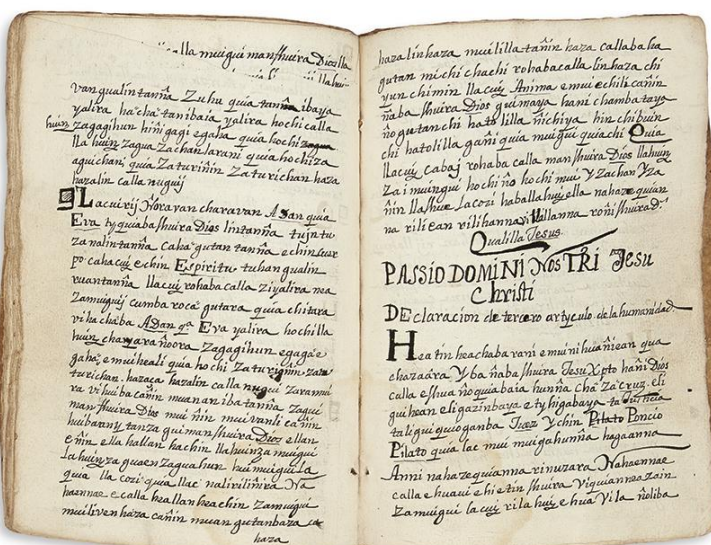 calla muigui man shuira Dios lla
van gualin tanña Zuhu quia tanña ibaya
yalira hacha tani baia yalira hochi calla
huin zagagihun hiñi gagi egaha quia hochi zagua
lla huin zagua zachan larani quia hochi za
agui chani quia Zaturiñin Zaturichan haza
hazalin calla nuguij
Lacuirij Noravan charavan Adan quia
Eva ty quiaba shuira Dios lintanña tuintu
za nalin tanña caha gutan tanña echin cuer
po cahacuj echin Espiritu tuhan gualin
ruantanña llacuj rohaba calla ziyalira nea
Zamuiguij cumba roca gutara quia chitara
vihachaba Adan qa Eva yalira hochilla
huin charara ñoora zagagihun egaga e
gaha emuiheali quia hochi Zaturiñin zatu
turichan hazaca hazalin calla nuguij zarannu
ra vihuiba cañin muanan iba tanña zagui
man shuira Dios mui ñin muivanli cañin
huibanny tanza gui man shuira Dios ellan
eñin ella hallan hachin lla huinza muigui
La huin za guaen zaguahun hui muigui La
quia lla cozi quia llac nalirilinira Na
haennae e calla heallan heachin Zamuigui
muiliven haza cañin muan gutanbaza ca
haza
haza linhaza muililla tañin haza calla ba ha
gutan michi chachi rohaba calla linhaza chi
yun chimin lla cuj Anima emuiechili cañin
ñaba shuira Dios guimaya hani chambataya
ño gutanchi hatolilla nichiya hin chibuin
chi hatolilla gañi quia muigui quiachi Quia
llacuj cabaj rohaba calla man shuira Dios lla huin
Zai muingui hochi ño hochi mui Y zachan Yza
ñin lla shue Lacozi haballa hui ella nahaze quian
na rili ean rili hanna rilillanna roñi shuira ds
Qualilla Jesus.
PASSIO DOMINI NosTRI Jesu
Christi
DEclaracion de tercero artyculo de la humanidad.
Heatin heachaba rani emuini huañiean qua
chazaára Y ba ñaba shuira Jesu Xpto hañi Dios
calla eshua ño quiabaia hunña cha za cruz eli
guihoan eli gazinbaya e ty higabaya ta Justicia
tali gui quio ganba Juez Y chin Pilato Poncio
Pilato quia lac mui muigahunña hagaanna
Anni nahaze quianna rinuzara Nahaennae
calla e huavi e hi etin shuira Viquianneazain
Zamuigui la cuj rila huij e hua Vila ñoliba